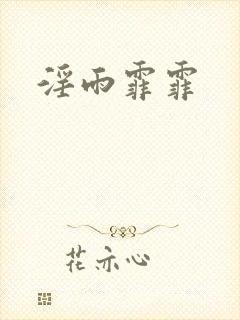 淫雨霏霏
花亦心